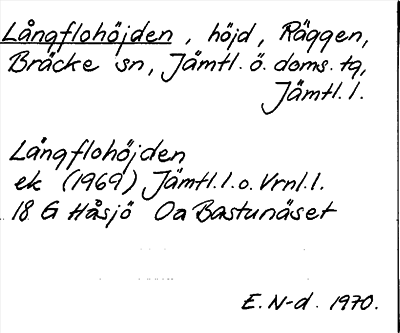 Långflohöjden, höjd, Räggen,
Bräcke sn, Jämtl. ö. doms. tg,
Jämtl. l.
Långflohöjden
ek (1969) Jämtl. l. o. Vrnl. l.
18 G Håsjö Oa Bastunäset
E. N-d. 1970.